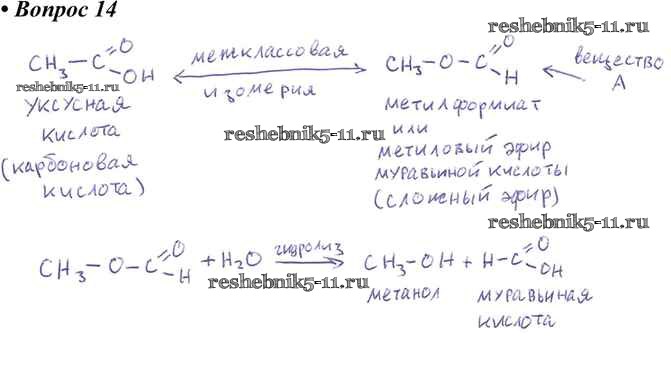 • Вопрос 14
reshebnik5-11.ru
CH₃ – C =O OH
межклассовая
изомерия
CH₃ – O – C =O H
вещество
А
reshebnik5-11.ru
уксусная
кислота
(карбоновая
кислота)
reshebnik5-11.ru
метилформиат
или
метиловый эфир
муравьиной кислоты
(сложный эфир)
reshebnik5-11.ru
CH₃ – O – C =O H + H₂O гидролиз CH₃ – OH + H – C =O OH
reshebnik5-11.ru
метанол муравьиная
кислота
reshebnik5-11.ru